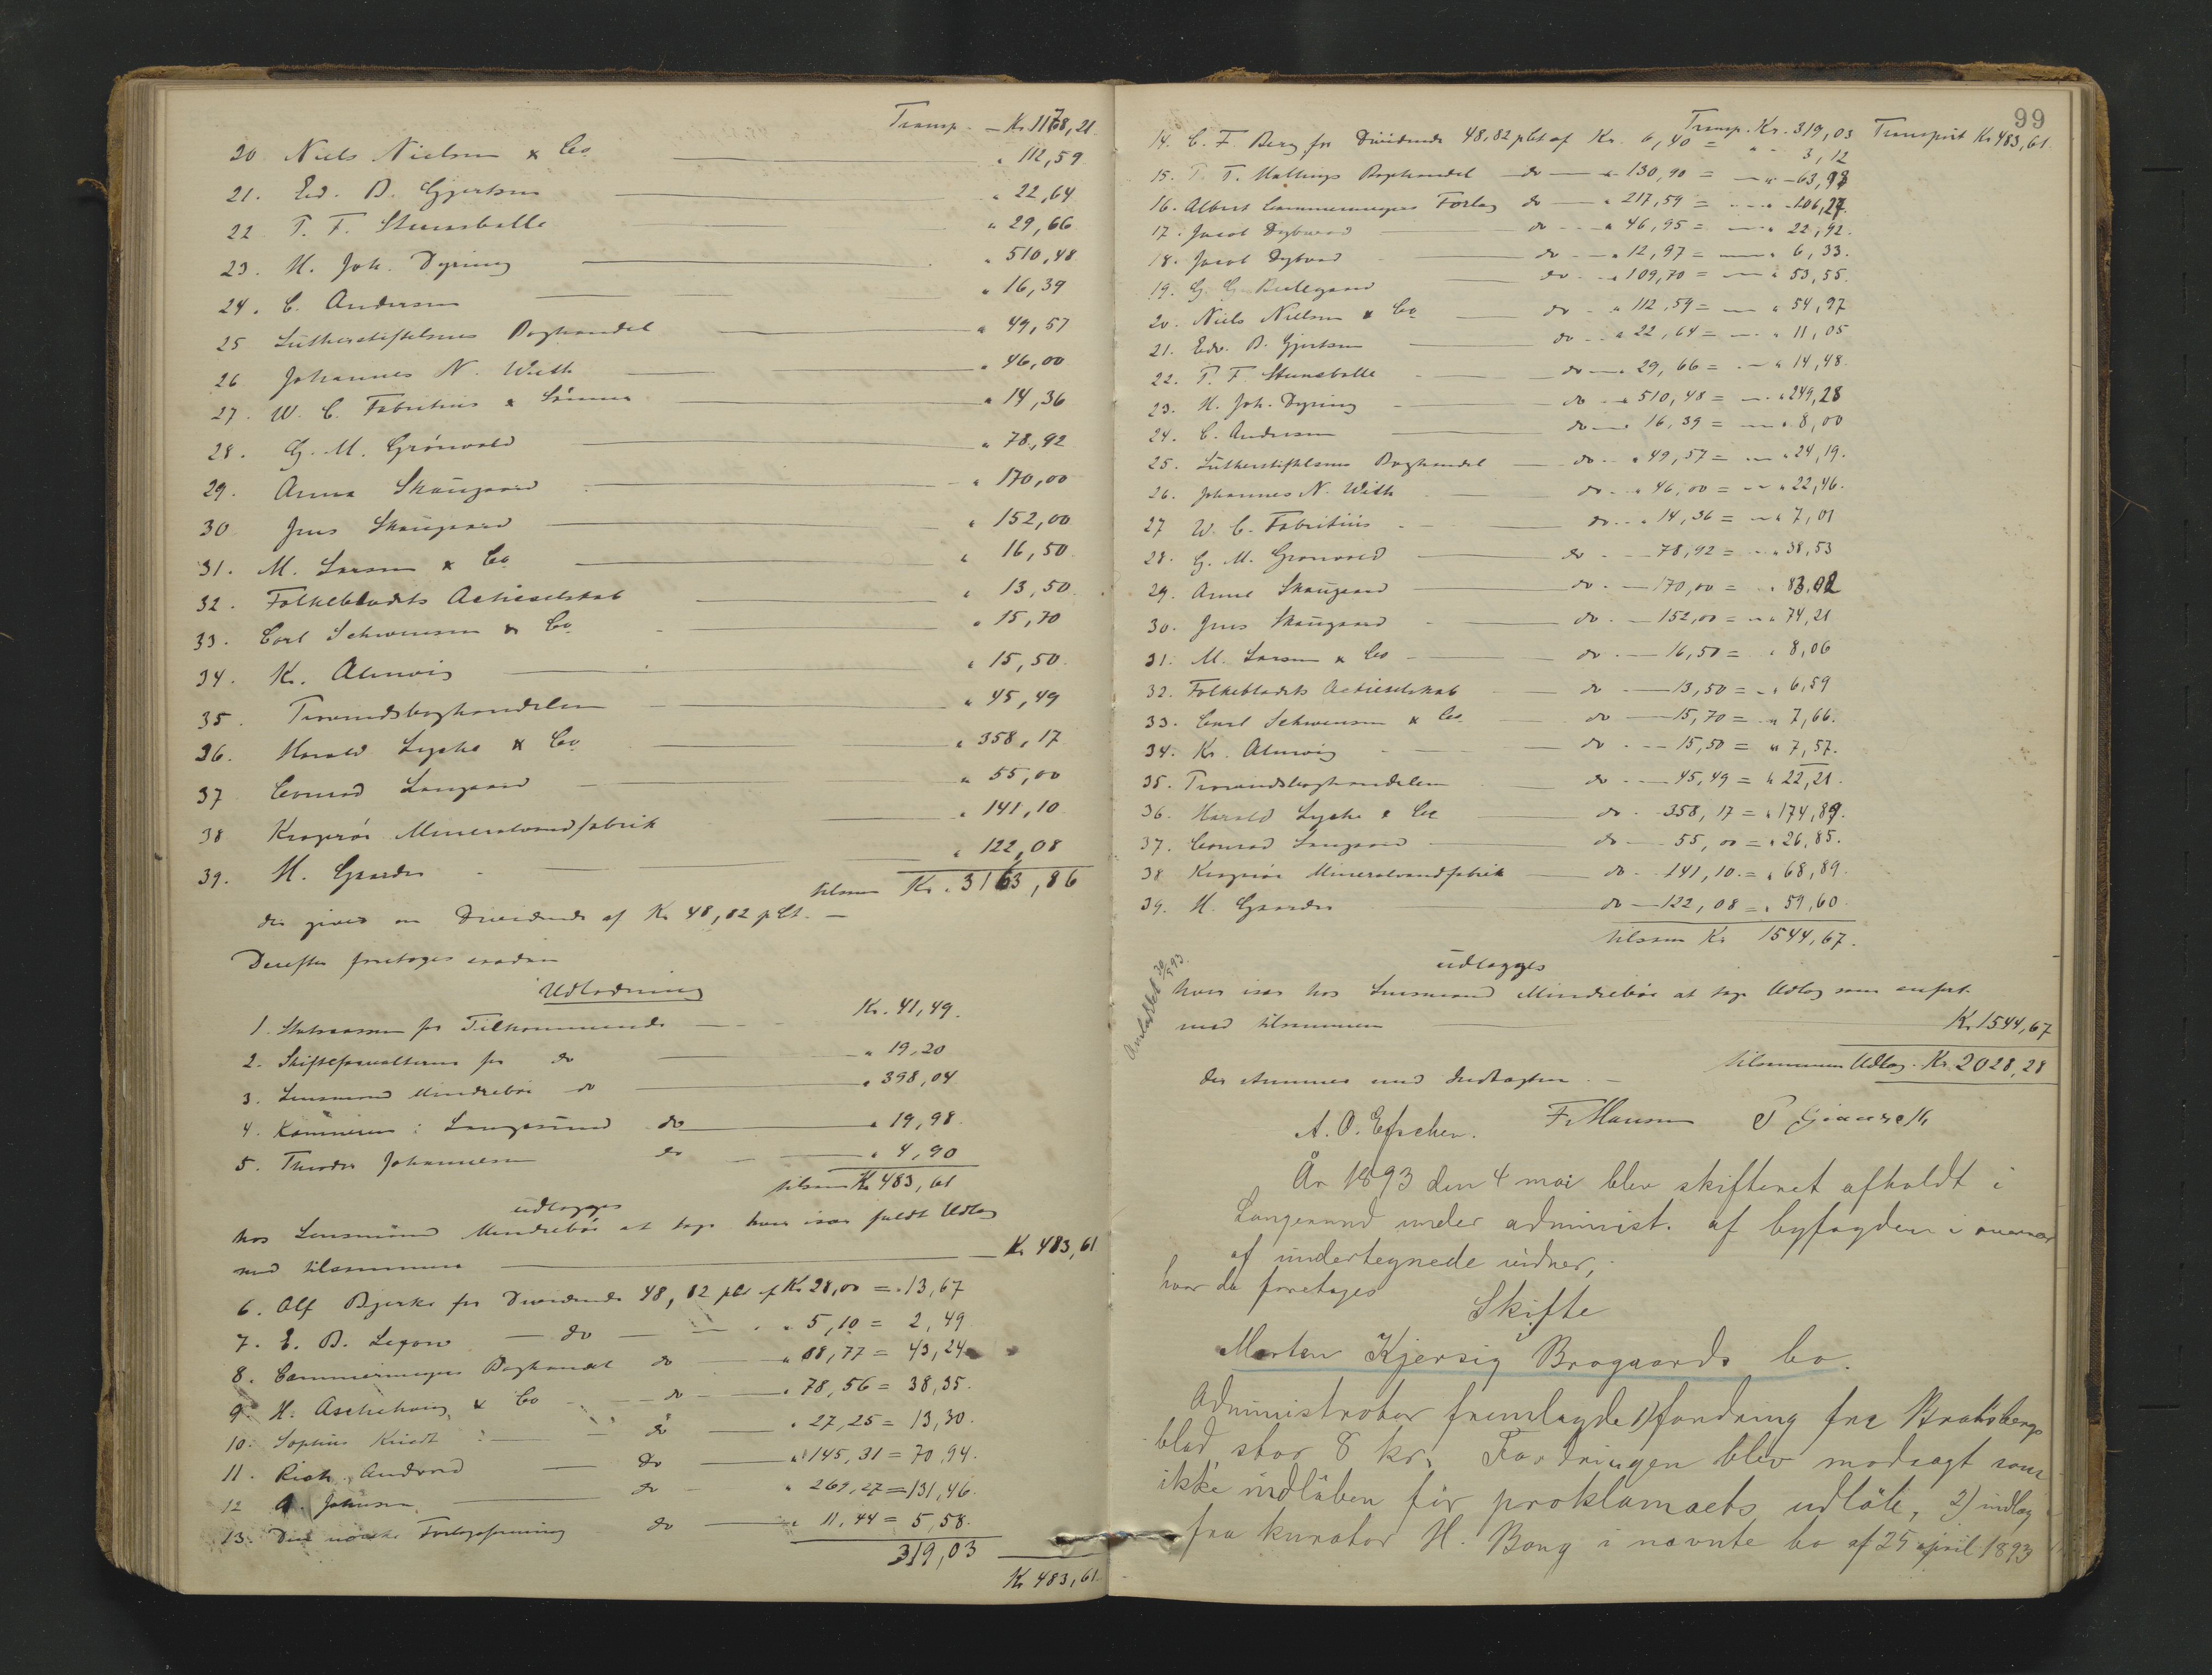 Transp. — Kr. 1168,21.
20 Niels Nielsen & Co " 112,59
21. Ed. B. Gjertsen " 22,64
22 P. F. Steensballe " 29,66
23. H. Joh. Dyring " 510,48
24. C. Andersen " 16,39
25 Lutherstiftelsens Boghandel " 49,57
26 Johannes N. With " 46,00
27. W. C. Fabritius & Sønner " 14,36
28. G. M. Grönvold " 78,92
29. Anna Skaugaard " 170,00
30 Jens Skaugaard " 152,00
31. M. Larsen & Co " 16,50
32. Folkebladets Actieselskab " 13,50
33. Carl Schwensen & Co " 15,70
34. K. " 15,50
35. Travendsboghandelen " 45,49
36. Harald Lyche & Co " 358,17
37 Conrad Langaard " 55,00
38 Kragerös Mineralvandfabrik " 141,10
39. H. Gaarder " 122,08
tilsam Kr. 3163,86
der gives en Dividende af Kr 48,82 pCt. —
Derefter foretoges saadan
Udlodning
1. Statskassen for Tilkommende Kr. 41,49.
2. Skifteforvalteren for do " 19,20
3. Lensmand Mindrebö do " 398,04
4. Kæmneren i Langesund do " 19,98
5. Theodor Johannesen do " 4,90
tilsam Kr 483,61
udlægges
hos Lensmand Mindrebö at tage hver især fuldt Udlæg
med tilsammen Kr 483,61
6. Alf Bjerke for Dividende 48,82 pCt af Kr 28,00 = 13,67
7. E. B. — do — " 5,10 = 2,49
8. Cammermeyers Boghandel do " 88,77 = 43,24
9. H. Aschehoug & Co do " 78,56 = 38,35.
10. Sophus do " 27,25 = 13,30.
11. Rich. Andvord do " 145,31 = 70,94.
12 A. Johnsen do " 269,27 = 131,46.
13. Den norske Forlagsforening do " 11,44 = 5,58.
319,03
Kr 483,61
99
Transp. Kr. 319,03 Transport Kr 483,61.
14. C. F. Berg for Dividende 48,82 pCt af Kr. 6,40 = " 3,12
15. P. T. Mallings Boghandel do " 130,90 = " 63,93
16. Albert Cammermeyers Forlag do " 217,59 = " 106,24
17. Jacob Dybwad do " 46,95 = " 22,92.
18. Jacob Dybwad do " 12,97 = " 6,33.
19. G. G. do " 109,70 = " 53,55.
20. Niels Nielsen & Co do " 112,59 = " 54,97
21. Edv. B. Gjertsen do " 22,64 = " 11,05
22. P. F. Steensballe do " 29,66 = " 14,48
23. H. Joh. Dyring do " 510,48 = " 249,28
24. C. Andersen do " 16,39 = " 8,00
25. Lutherstiftelsens Boghandel do " 49,57 = " 24,19.
26. Johannes N. With do " 46,00 = " 22,46.
27 W. C. Fabritius do " 14,36 = " 7,01
28. G. M. Grönvold do — 78,92 = " 38,53
29. Anne Skaugaard do — 170,00 = " 83,02
30. Jens Skaugaard do — 152,00 = " 74,21
31. M. Larsen & Co do — 16,50 = " 8,06
32. Folkebladets Actieselskab do — 13,50 = " 6,59
33. Carl Schwensen & Co do — 15,70 = " 7,66.
34. Kr. do — 15,50 = " 7,57.
35. Travendsboghandelen do — 45,49 = " 22,21.
36. Harald Lyche & Co do — 358,17 = " 174,89.
37. Conrad Langaard do — 55,00 = " 26,85.
38 Kragerös Mineralvandfabrik do — 141,10. = " 68,89.
39. H. Gaarder do — 122,08 = " 59,60
tilsam Kr 1544,67.
Anlastet 30/5 93.
udlægges
hver især hos Lensmand Mindrebö at tage Udlæg som anført
med tilsammen Kr 1544,67
tilsammen Udlæg. Kr. 2028,28
der stemmer med Indtægten. —
A. O. F. Hansen P
År 1893 den 4 mai blev skifteret afholdt i
Langesund under administ. af byfogden i overvær
af undertegnede vidner,
hvor da foretoges
Skifte
i Morten Kjersig Brogaards bo.
Administrator fremlagde 1) fordring fra Bratsbergs
blad, stor 8 kr. Fordringen blev modsagt som
ikke indløben før proklamaets udløb, 2) indlæg
fra kurator H. Bang i nævnte bo af 25 april 1893